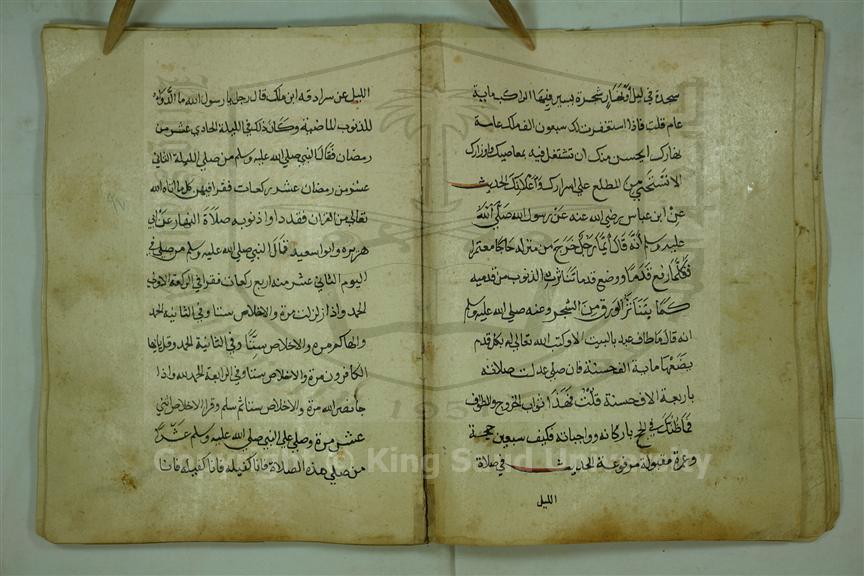 سجدة في ليل أو نهار شجرة يسير فيها الراكب ماية
عام قلت فاذا استغفرت لك سبعون الف ملك عامة
نهارك ايحسن منك ان تشتغل فيه بمعاصيك واوزارك
الا تستحي من المطلع علي اسرارك واعلانك الحديث
عن ابن عباس رضي الله عنه عن رسول الله صلي الله
عليه وسلم أنه قال أيما رجل خرج من منزله حاجا معتمرا
فكلما رفع قدما ووضع قدما تناثرت الذنوب من قدميه
كما يتناثر الورق من الشجر وعنه صلي الله عليه وسلم
انه قال ما طاف عبد بالبيت الا وكتب الله تعالي له بكل قدم
يضعها ماية الف حسنة فان صلي عدلت صلاته
باربعة الاف حسنة قلت فهذا ثواب الخروج والطواف
فما ظنك في الحج باركانه وواجباته فكيف سبعين حجة
وعمرة مقبولة مرفوعة الحديث في صلاة
الليل
الليل عن سراقة ابن ملك قال رجل يا رسول الله ما الدواء
للذنوب الماضية وكان ذلك في الليلة الحادي عشر من
رمضان فقال النبي صلي الله عليه وسلم من صلي الليلة الثاني
عشر من رمضان عشر ركعات فقرا فيهن كل ما اتاه الله
تعالي من القران فقد داوا ذنوبه صلاة النهار عن ابي
هريره وابو سعيد قال النبي صلي الله عليه وسلم من صلي في
اليوم الثاني عشر منه اربع ركعات فقرا في الركعة الاولي
الحمد واذا زلزلت مرة والاخلاص ستا وفي الثانية الحمد
والهاكم مره والاخلاص ستا وفي الثانية الحمد وقل يا ايها
الكافرون مرة والاخلاص ستا وفي الرابعة الحمد لله واذا
جا نصر الله مرة والاخلاص ستا ثم سلم وقرا الاخلاص اثني
عشر مرة وصلي علي النبي صلي الله عليه وسلم عشرا
من صلي هذه الصلاة فانا كفيله فانا كفيله فانا
Copyright © King Saud University
195